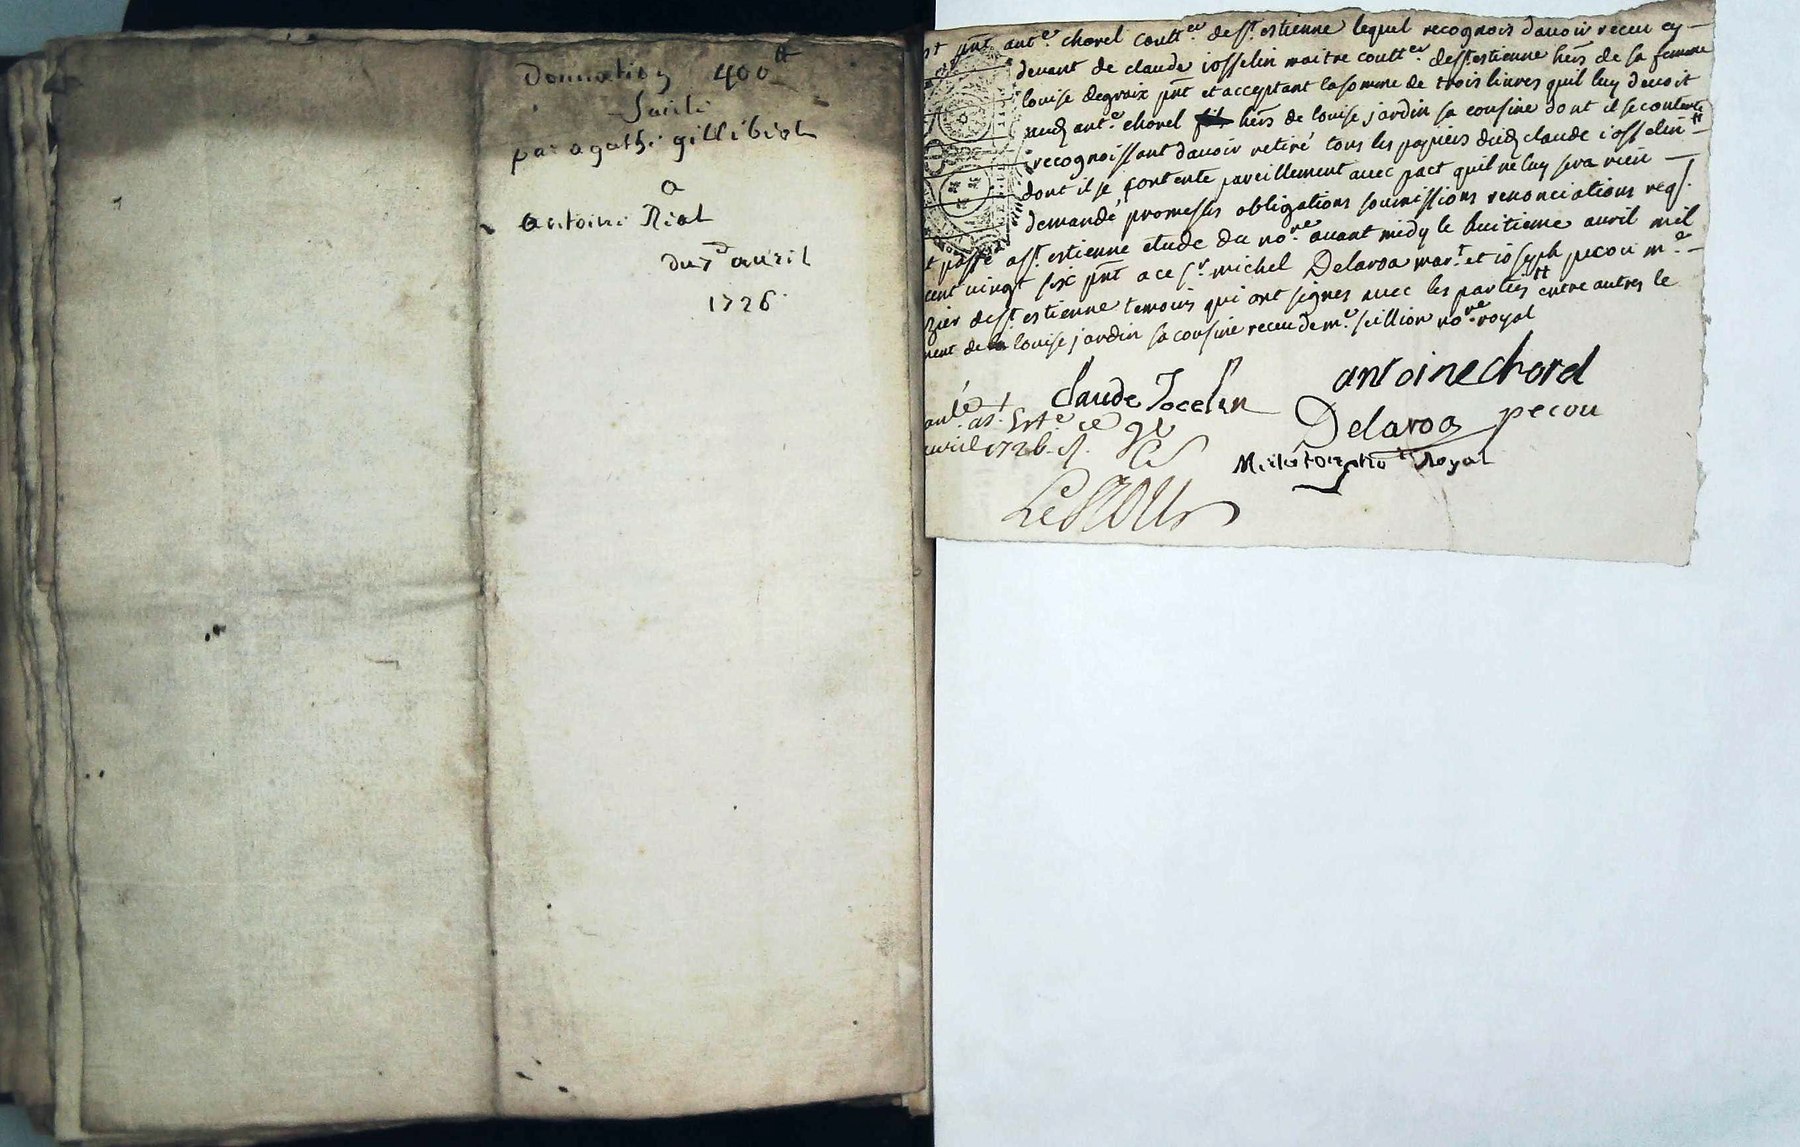 Donnation 400 tt
faicte
par agathe gillibert
a
antoine Riat
du 7e avril
1726
pnt ante. chorel coulter. de st. estienne lequel recognois davoir receu cy
devant de claude iosselin maitre coultr. de st. estienne hers de sa femme
louise degraix pnt et acceptant la somme de trois livres quil luy devoit
audt ante. chorel hers de louise jardin sa cousine dont il se contente
recognoissant davoir retiré tous les papiers dud claude iosselin tt
dont il se contente pareillement avec pact quil ne luy sera rien
demandé promesses obligations soumissions renonciations reqs.
t passé a st. estienne etude du nore. avant midy le huitieme avril mil
cent vingt six pnt a ce sr. michel Delaroa mart. et ioseph pecou me
zier de st. estienne temoins qui ont signes avec les parties tt entre autres le
ment de louise jardin sa cousine receu de me. seillion nore. royal
claude Jocelin
antoine chorel
Delaroa
pecou
avril 1726
Royal